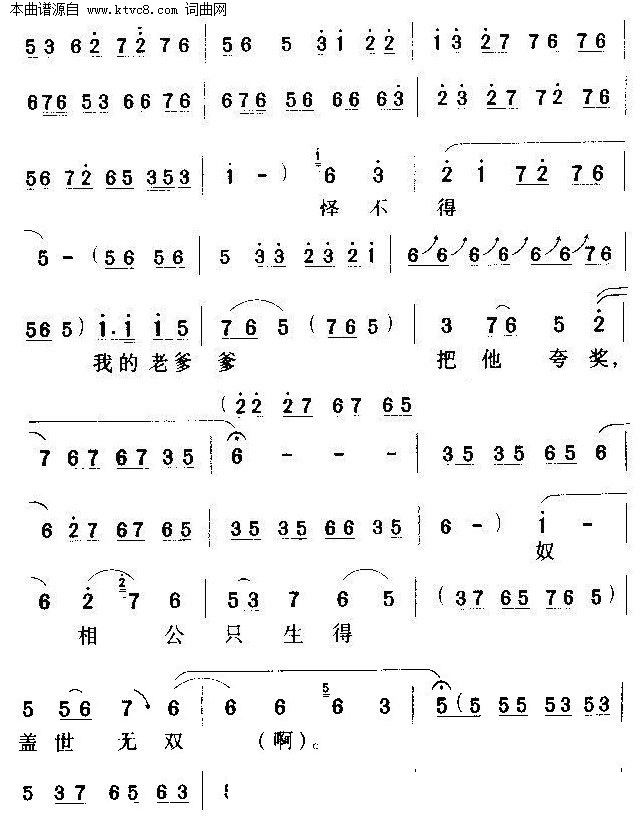 本曲谱源自 www.ktvc8.com 词曲网
5 3 6 2 7 2 7 6 | 5 6 5 3 1 2 2 | 1 3 2 7 7 6 7 6
6 7 6 5 3 6 6 7 6 | 6 7 6 5 6 6 6 6 3 | 2 3 2 7 7 2 7 6
5 6 7 2 6 5 3 5 3 | 1 - ) 1 6 3 | 2 1 7 2 7 6
怪 不 得
5 - ( 5 6 5 6 | 5 3 3 2 3 2 1 | 6 6 6 6 6 6 7 6
5 6 5 ) 1 . 1 1 5 | 7 6 5 ( 7 6 5 ) | 3 7 6 5 2
我的老爹 爹 把 他 夸 奖，
( 2 2 2 7 6 7 6 5
7 6 7 6 7 3 5 | 6 - - - | 3 5 3 5 6 5 6
6 2 7 6 7 6 5 | 3 5 3 5 6 6 3 5 | 6 - ) 1 -
奴
6 2 2 7 6 | 5 3 7 6 5 | ( 3 7 6 5 7 6 5 )
相 公 只 生 得
5 5 6 7 6 | 6 6 5 6 3 | 5 ( 5 5 5 5 3 5 3
盖 世 无 双 (啊)。
5 3 7 6 5 6 3 |